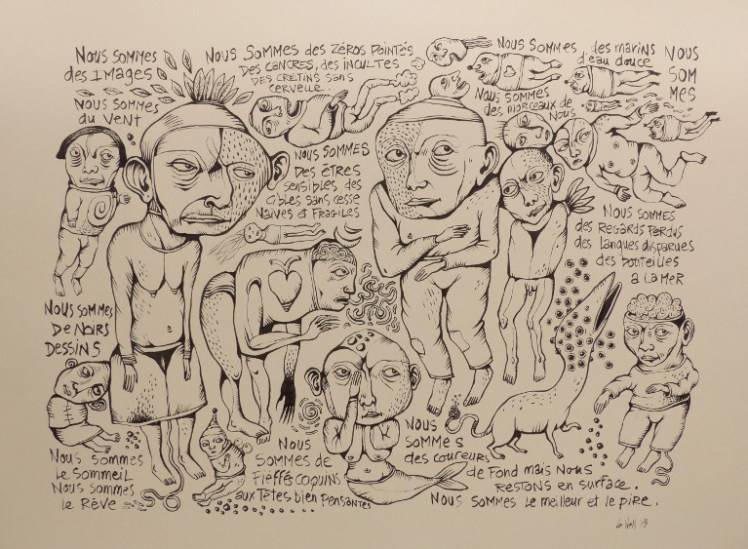 NOUS SOMMES
des IMAGES
NOUS SOMMES
du VeNT
NOUS SOMMES des ZÉROS POINTÉS
DES CANCRES, des INCULTES
DES CRETINS SANS
CERVELLE...
NOUS SOMMES
des marins
d'eau douce
NOUS
SOM
MES
NOUS SOMMES
des morceaux de
Nous
NOUS SOMMES
DES ÊTRES
sensibles des
cibles sans cesse
Naïves et Fragiles
NOUS SOMMES
des Regards Perdus
des langues disparues
des bouteilles
a La MER
NOUS SOMMES
DE NOIRS
DESSINS
NOUS SOMMES
Le SOMMEIL
NOUS SOMMES
le RÊVE
NOUS
SOMMES DE
Fieffés coquins
aux Têtes bien pensantes
NOUS
SOMMES
des coureurs
de Fond mais NOUS
RESTONS en SURFACE.
NOUS SOMMES Le meilleur et le pire.